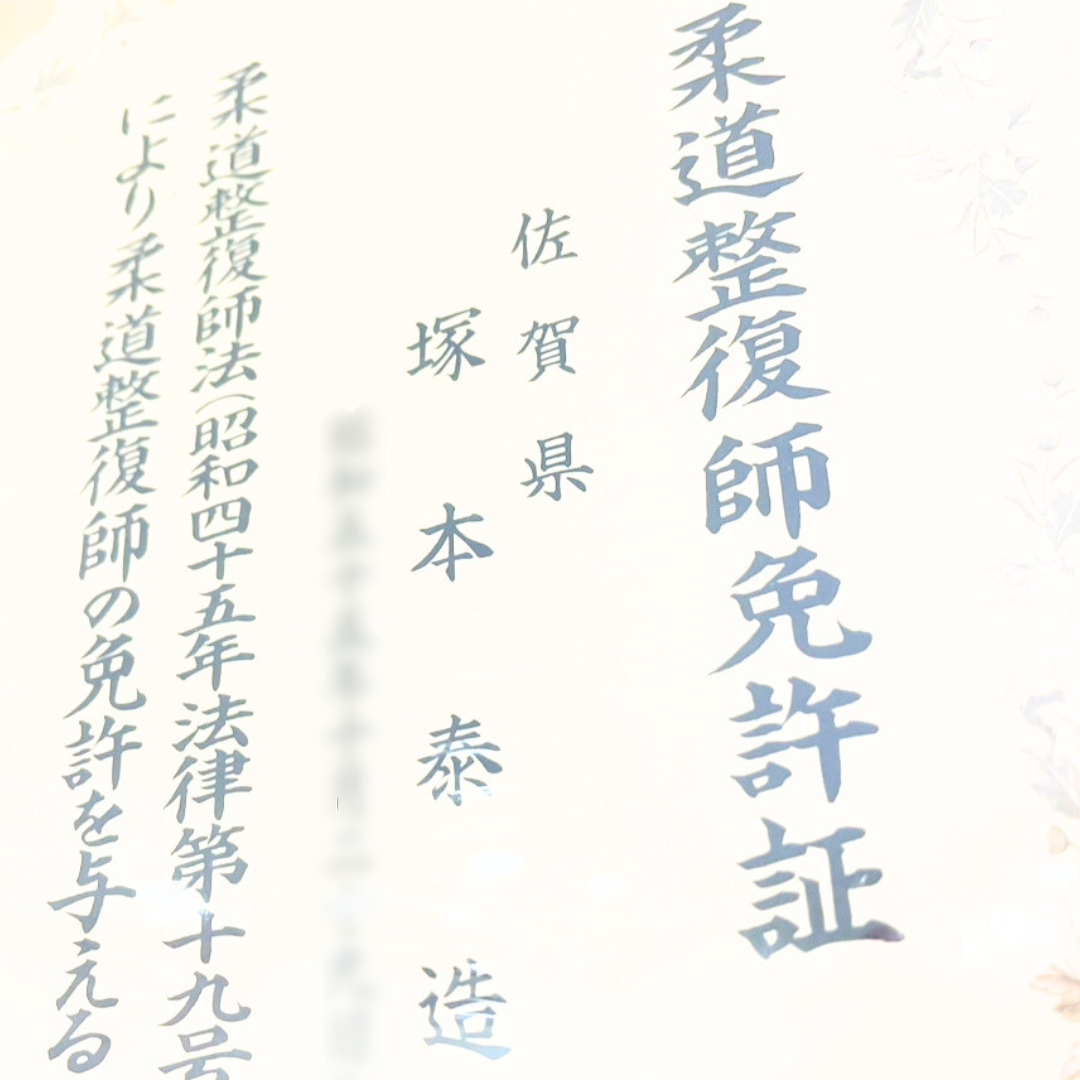 柔道整復師免許証
佐賀県
塚本泰造
柔道整復師法(昭和四十五年法律第十九号
により柔道整復師の免許を与える